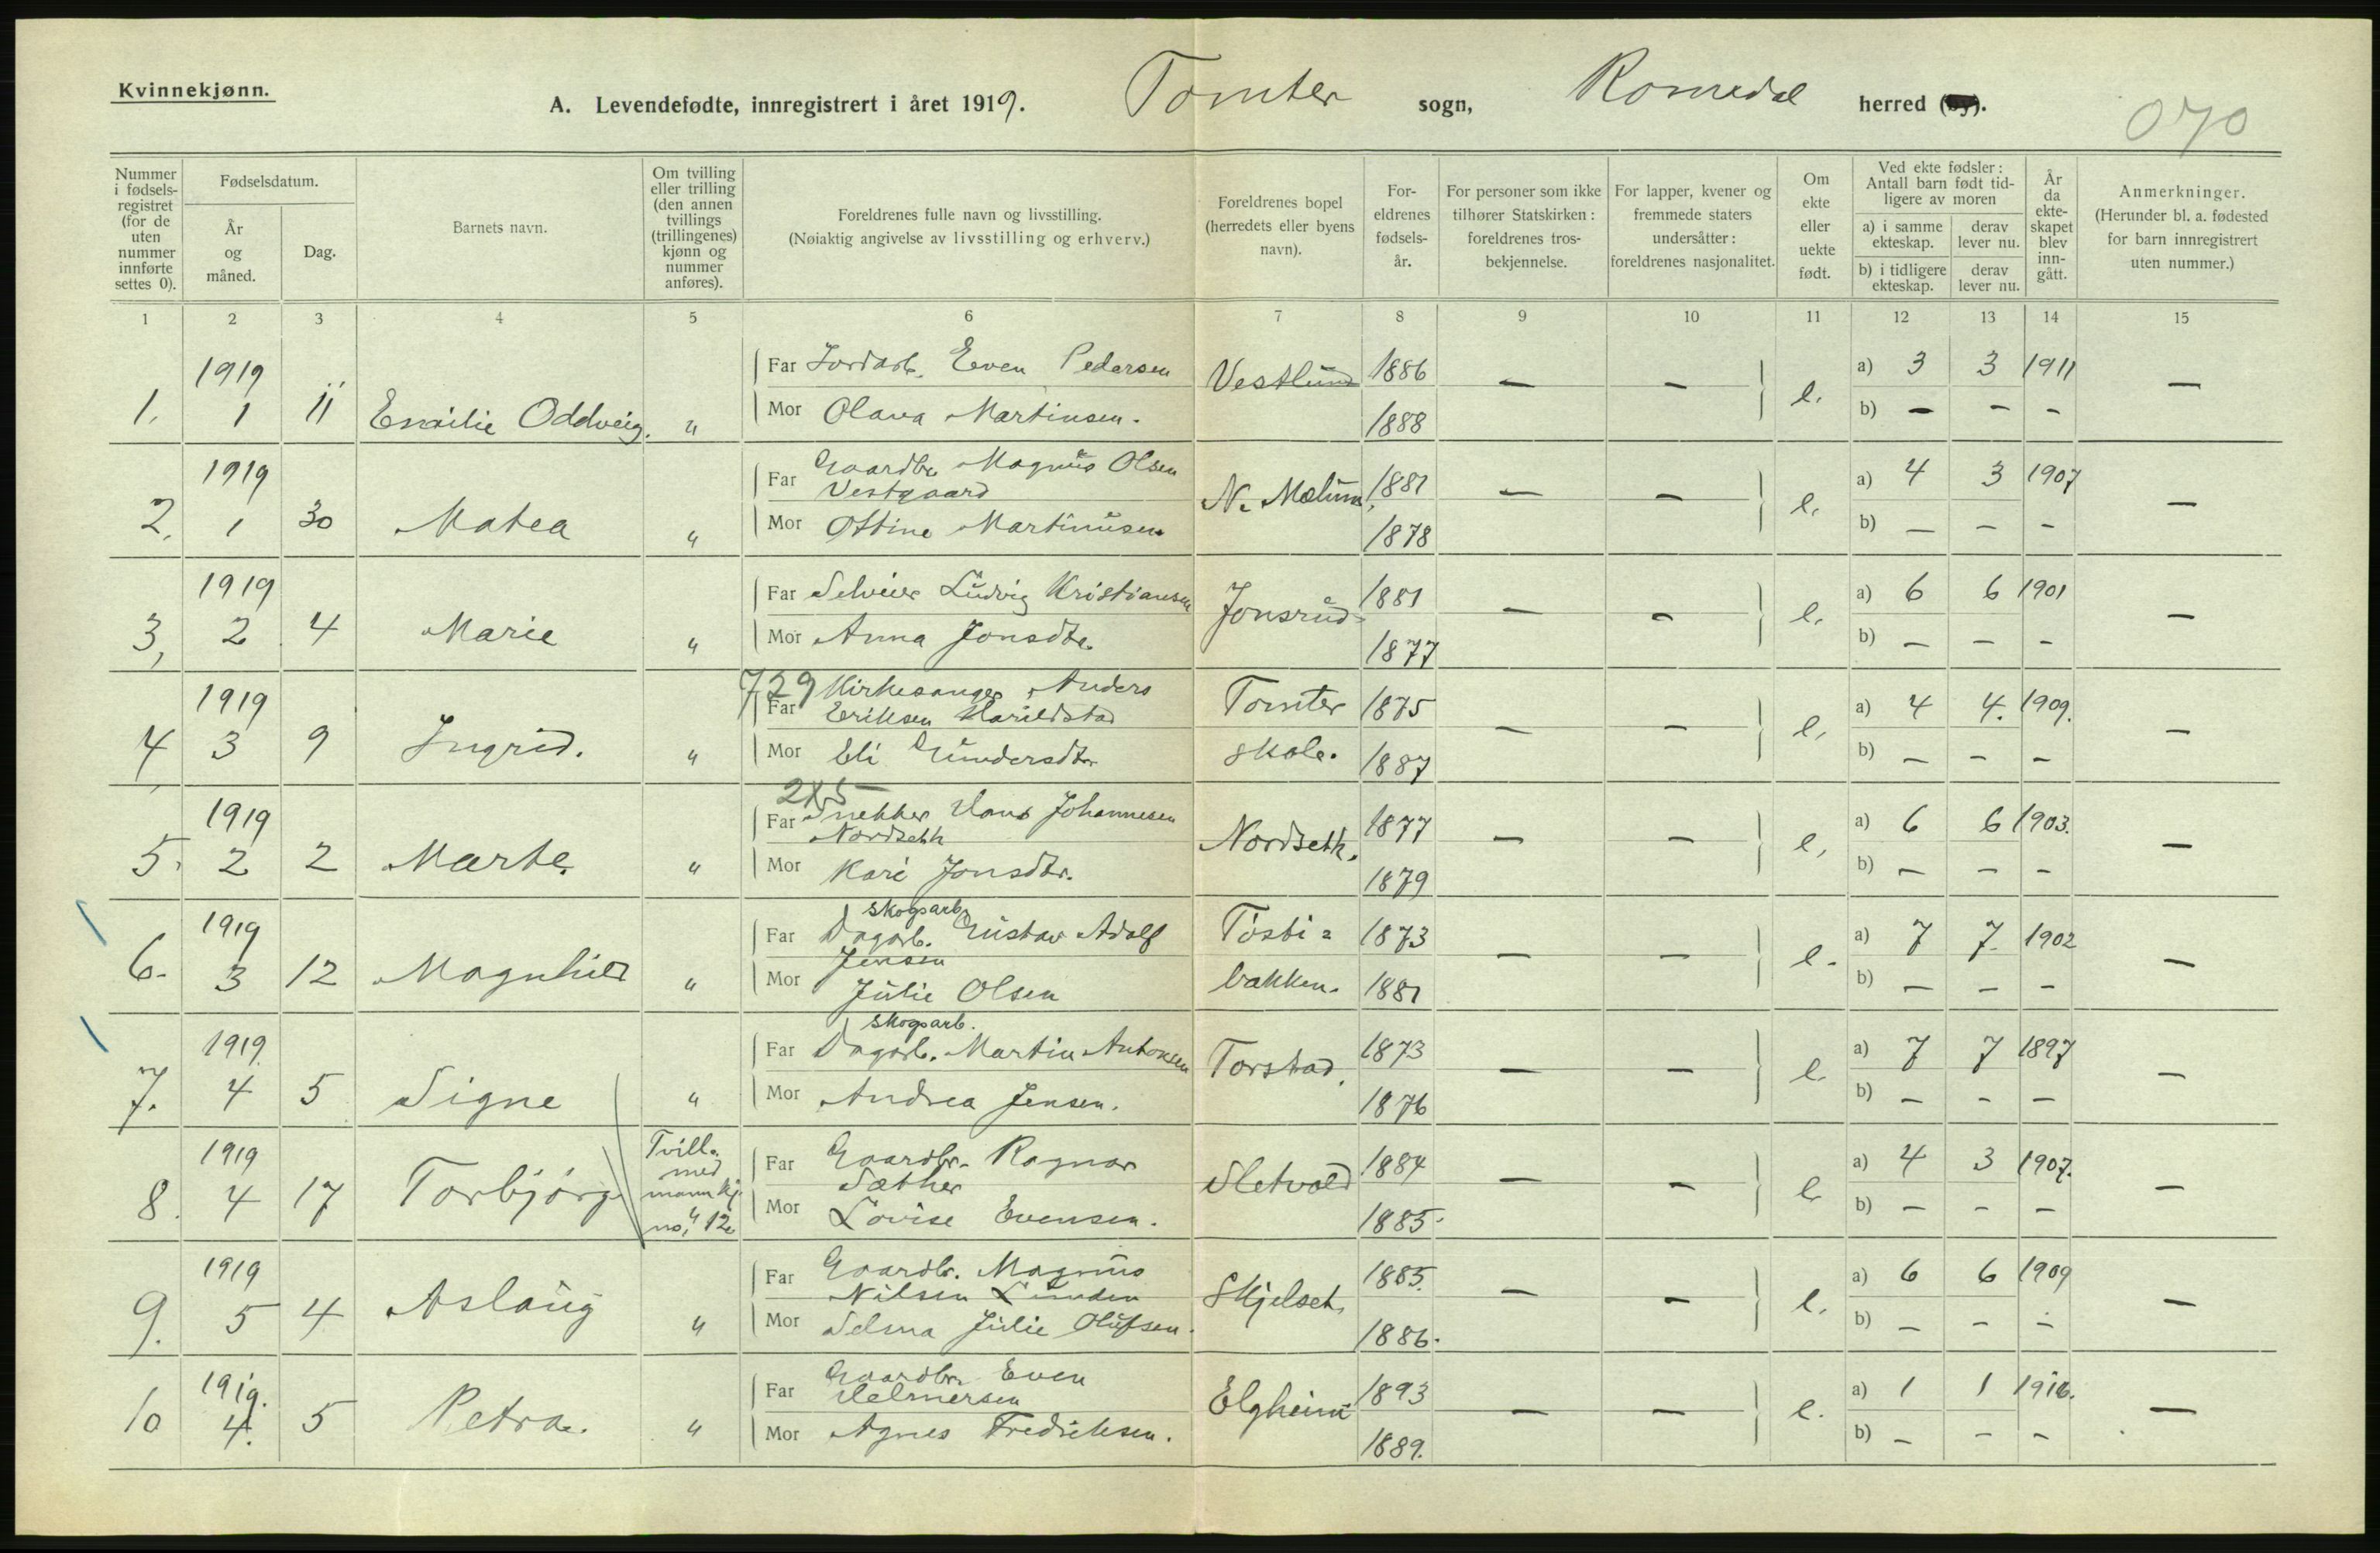 Kvinnekjønn.
A. Levendefødte, innregistrert i året 1919. Tomter sogn, Romedal herred (by).
070
Nummer i fødsels-registret (for de uten nummer innførte settes 0).
Fødselsdatum.
År og måned.
Dag.
Barnets navn.
Om tvilling eller trilling (den annen tvillings (trillingenes) kjønn og nummer anføres).
Foreldrenes fulle navn og livsstilling.
(Nøiaktig angivelse av livsstilling og erhverv.)
Foreldrenes bopel (herredets eller byens navn).
For-eldrenes fødsels-år.
For personer som ikke tilhører Statskirken: foreldrenes tros-bekjennelse.
For lapper, kvener og fremmede staters undersåtter: foreldrenes nasjonalitet.
Om ekte eller uekte født.
Ved ekte fødsler: Antall barn født tid-ligere av moren
a) i samme ekteskap.
derav lever nu.
b) i tidligere ekteskap.
derav lever nu.
År da ekte-skapet blev inn-gått.
Anmerkninger.
(Herunder bl. a. fødested for barn innregistrert uten nummer.)
1 2 3 4 5 6 7 8 9 10 11 12 13 14 15
1919 Far Jordarb. Even Pedersen Vestlund 1886 — — e. a) 3 3 1911 —
1. 1 11 Emilie Oddveig. " Mor Olava Martinsen. 1888 b) — — —
1919 Far Gaardbr. Magnus Olsen
Vestgaard N. Mælum, 1881 — — e. a) 4 3 1907 —
2. 1 30 Matea " Mor Ottine Martinusen 1878 b) — — —
1919 Far Selveier Ludvig Kristiansen Jonsrud 1881 — — e. a) 6 6 1901 —
3, 2 4 Marie " Mor Anna Jonsdtr. 1877 b) — — —
729 Kirkesanger Anders
1919 Far Eriksen Harildstad Tomter 1875 — — e, a) 4 4. 1909. —
4, 3 9 Ingrid. " Mor Eli Gundersdtr skole. 1887 b) — — —
2X5
1919 Far Snekker Hans Johannesen
Nordseth Nordseth. 1877 — — e, a) 6 6 1903. —
5. 2 2 Marte. " Mor Kari Jonsdtr. 1879 b) — — —
skogsarb.
1919 Far Dagarb. Gustav Adolf
Jensen Tosti= 1873 — — e. a) 7 7. 1902 —
6. 3 12 Magnhild " Mor Julie Olsen bakken. 1881 b) — — —
skogsarb.
1919. Far Dagarb. Martin Antonsen Torstad. 1873 — — e. a) 7 7 1897 —
7. 4 5 Signe " Mor Andrea Jensen. 1876 b) — — —
1919 Tvill. med mannkj. no. 12. Far Gaardbr. Ragnar
Sæther Sletvold 1884 — — e. a) 4 3 1907. —
8. 4 17 Torbjørg Mor Lovise Evensen. 1885. b) — — —
1919 Far Gaardbr. Magnus
Nilsen Lunden Skjelset, 1885. — — e. a) 6 6 1909 —
9. 5 4 Aslaug " Mor Selma Julie Olufsen. 1886. b) — — —
1919. Far Gaardbr. Even
Helmersen Elgheim 1893 — — e. a) 1 1 1916. —
10 4. 5 Petra. " Mor Agnes Fredriksen. 1889. b) — — —